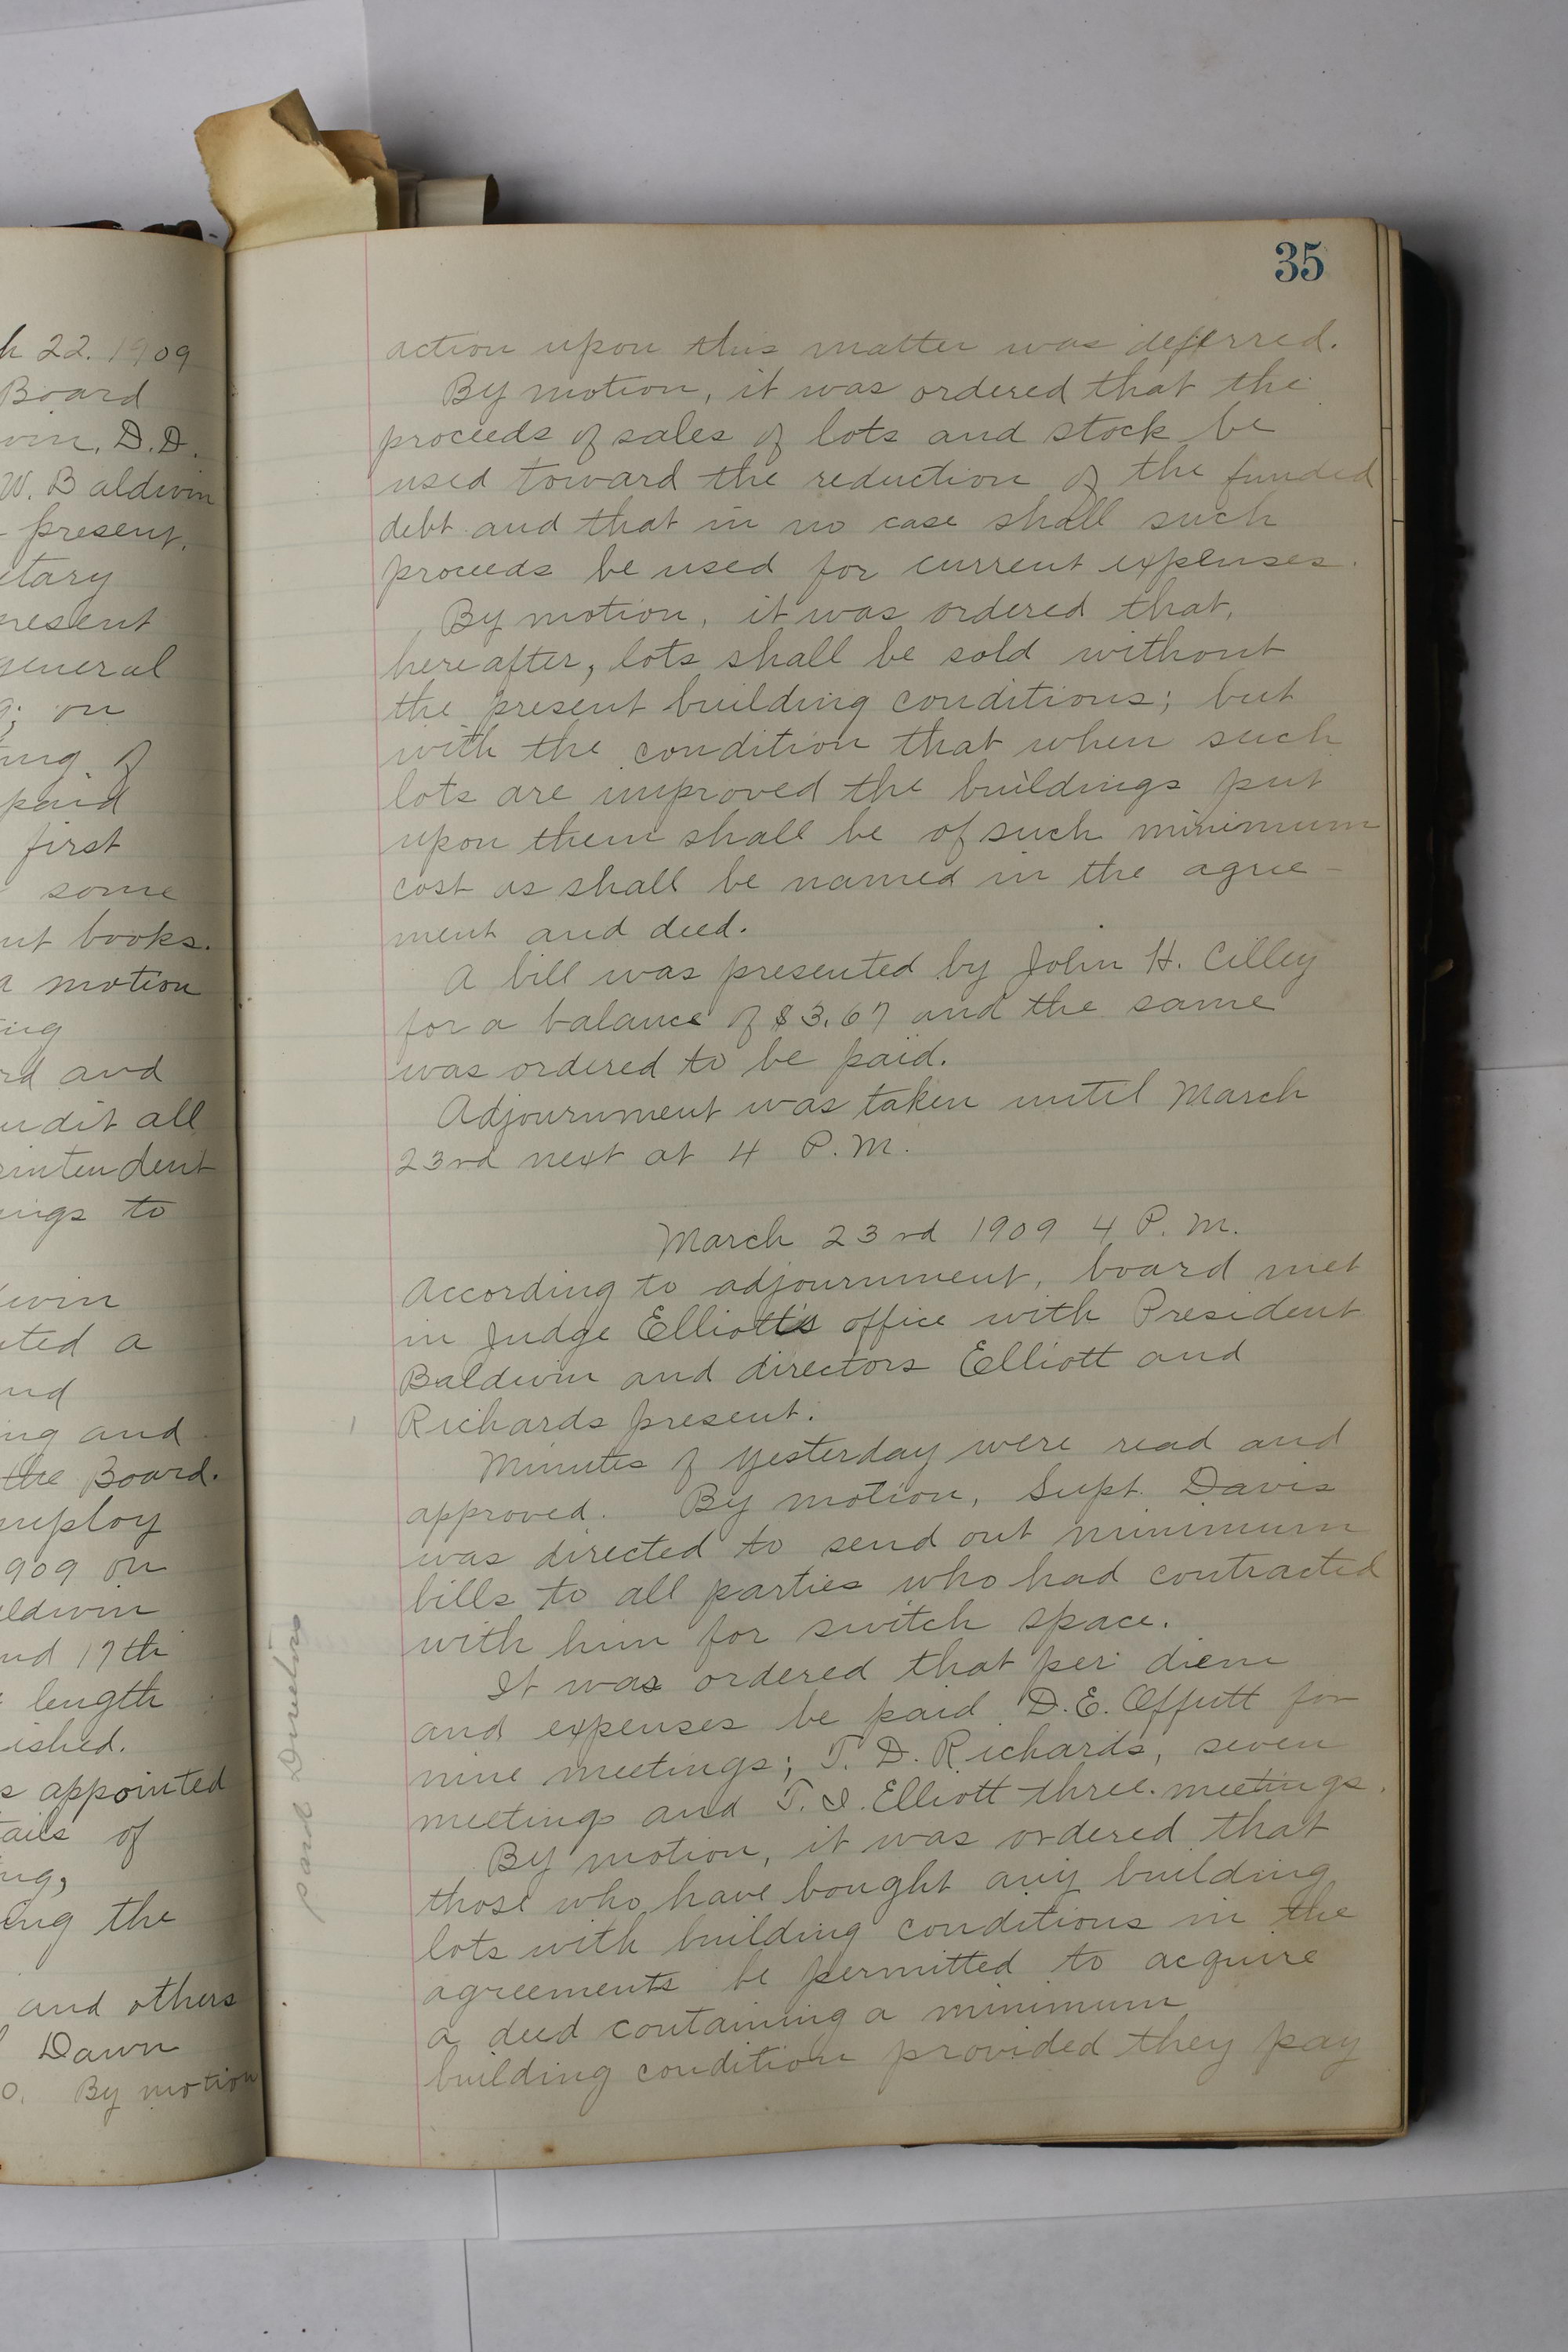 h 22. 1909
Board
win, D.D.
W. Baldwin
present.
etary
resent
general
g; on
ing of
paid
first
some
nt books.
a motion
ing
rd and
udit all
rintendent
ings to
win
ted a
nd
ng and
the Board.
mploy
909 on
ldwin
nd 17th
length
ished.
s appointed
ails of
ng,
ing the
and others
Dawn
o. By motion
35
action upon this matter was deferred.
By motion, it was ordered that the
proceeds of sales of lots and stock be
used toward the reduction of the funded
debt and that in no case shall such
proceeds be used for current expenses.
By motion, it was ordered that,
hereafter, lots shall be sold without
the present building conditions; but
with the condition that when such
lots are improved the buildings put
upon them shall be of such minimum
cost as shall be named in the agree-
ment and deed.
A bill was presented by John H. Cilley
for a balance of $3.67 and the same
was ordered to be paid.
Adjournment was taken until March
23rd next at 4 P.M.
March 23rd 1909 4 P.M.
According to adjournment, board met
in Judge Elliott's office with President
Baldwin and directors Elliott and
Richards present.
Minutes of yesterday were read and
approved. By motion, Supt. Davis
was directed to send out minimum
bills to all parties who had contracted
with him for switch space.
It was ordered that per diem
and expenses be paid D.E. Offutt for
nine meetings; T. D. Richards, seven
meetings and T. I. Elliott three meetings.
By motion, it was ordered that
those who have bought any building
lots with building conditions in the
agreements be permitted to acquire
a deed containing a minimum
building condition provided they pay
paid Directors